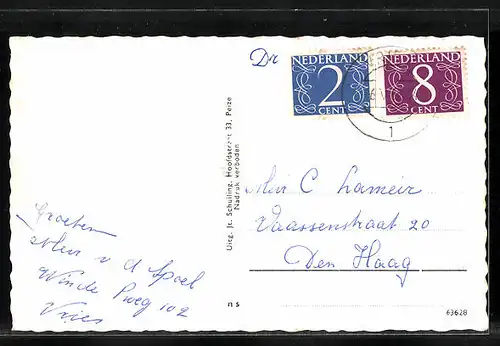 Dr
NEDERLAND
2
CENT
NEDERLAND
8
CENT
1
Uitg. Jt. Schuiling, Hoofdstraat 33, Peize
Nadruk verboden
C Lameir
Vaassenstraat 20
Den Haag
Groeten
v d
102
Vries
n s
63628